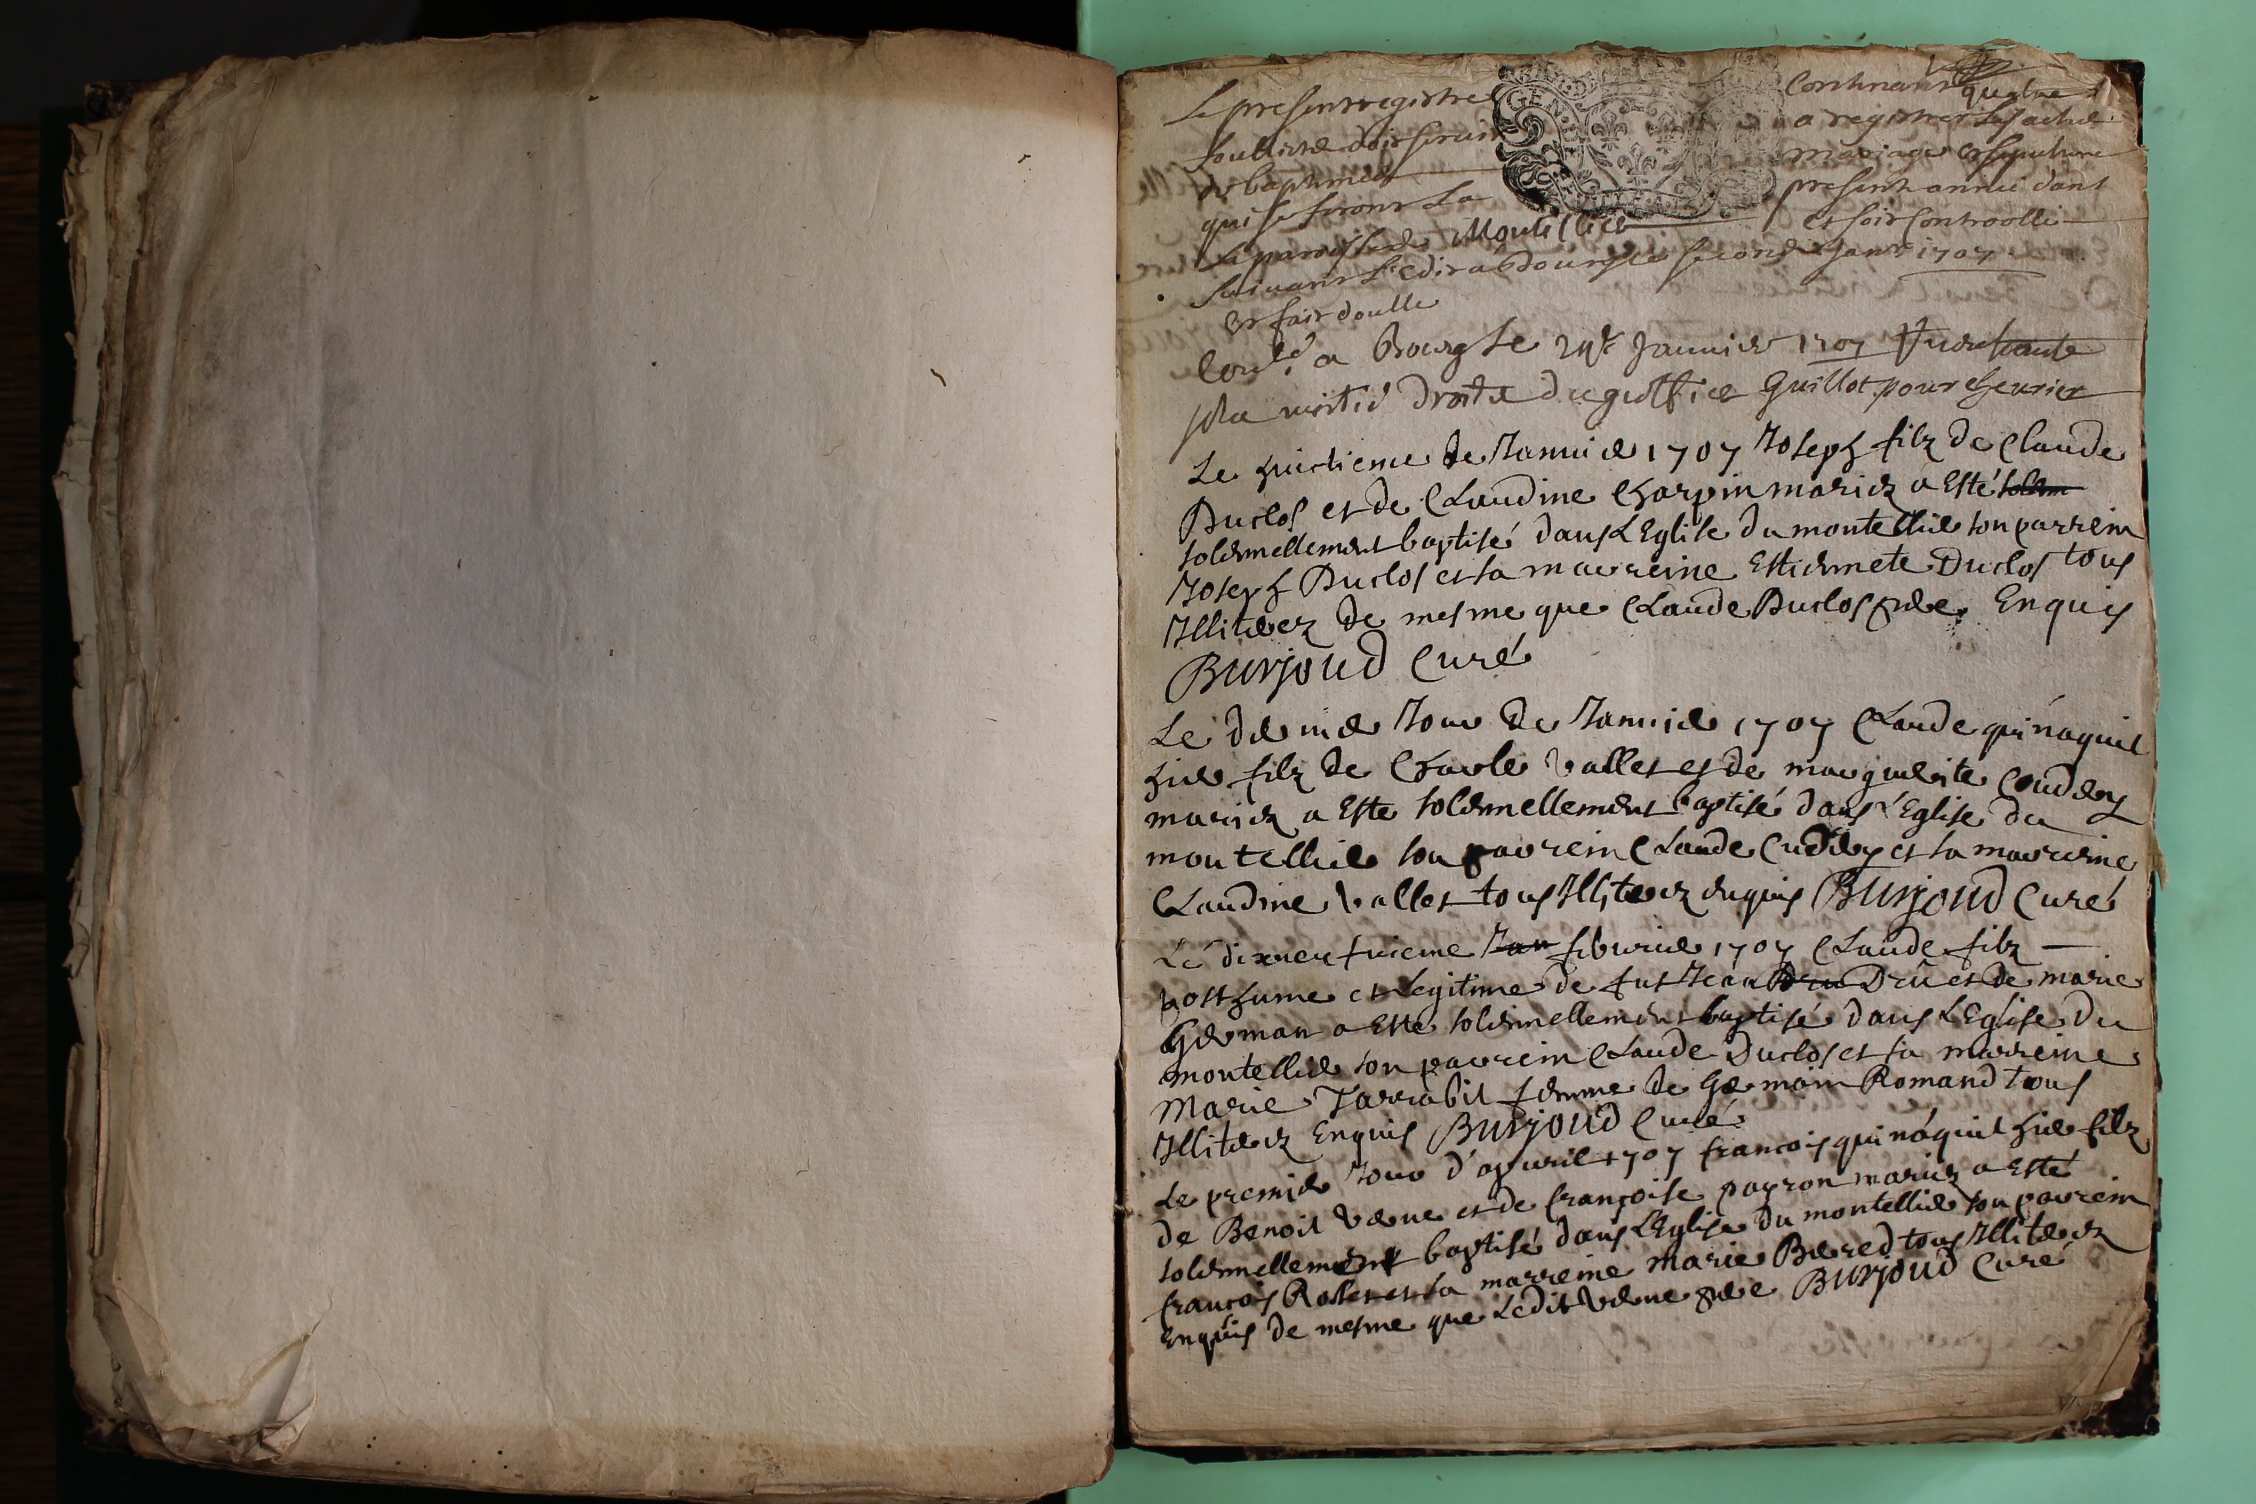 Le present registre Contenant quatre
foulliets doit servir a registrer les actes
de baptumes mariages et sepulture
qui se feront La present année dans
La paroisse de Montellier et soit Controollé
suivant L'edit a Bourg ce second janr 1707
et fait double
Conlé a Bourg Le Janvier 1707
pla moitié droits du greffier Guillot pour chevrier
Le huictieme de Janvier 1707 Joseph filz de Claude
Duclos et de Claudine Charpin mariez a Esté solem
solemnellement baptisé dans L'Eglise du montellier son parrein
Joseph Duclos et sa marreine Estiennete Duclos tous
Illiterez de mesme que Claude Duclos pere Enquis
Burjoud Curé
Le dernier Jour de Janvier 1707 Claude qui náquit
hier filz de Charle Vallet et de marguerite Coudery
mariez a Este solemnellement baptisé dans l'Eglise du
montellier son parrein Claude Cudery et sa marreine
Claudine Vallet tous Illiterez enquis Burjoud Curé
Le dixneufuieme Jan febvrier 1707 Claude filz
posthume et Legitime de fut Jean Dru Drû et de marie
German a Este solemnellement baptisé dans L'Eglise du
montellier son parrein Claude Duclos et sa marreine
Marie Tarrabit femme de Germain Romand tous
Illiterez Enquis Burjoud Curé
Le premier Jour d'apvril 1707 francois qui náquit hier filz
de Benoit Verne et de françoise payron mariez a Esté
solemnellement baptisé dans L'Eglise du montellier son parrein
francois Rolet et sa marreine marie Bered tous Illiterez
Enquis de mesme que Ledit Verne pere Burjoud Curé